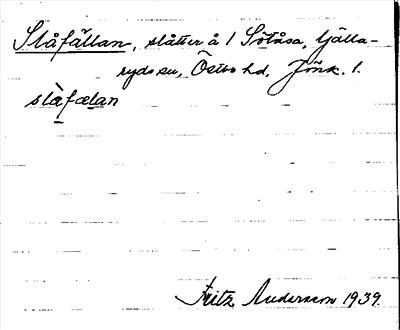 Slåfällan, slåtter å 1 Sötåsa, Tjälla-
ryds sn, Östbo hd, Jönk. l.
slàfælan
Fritz Andersson 1939.